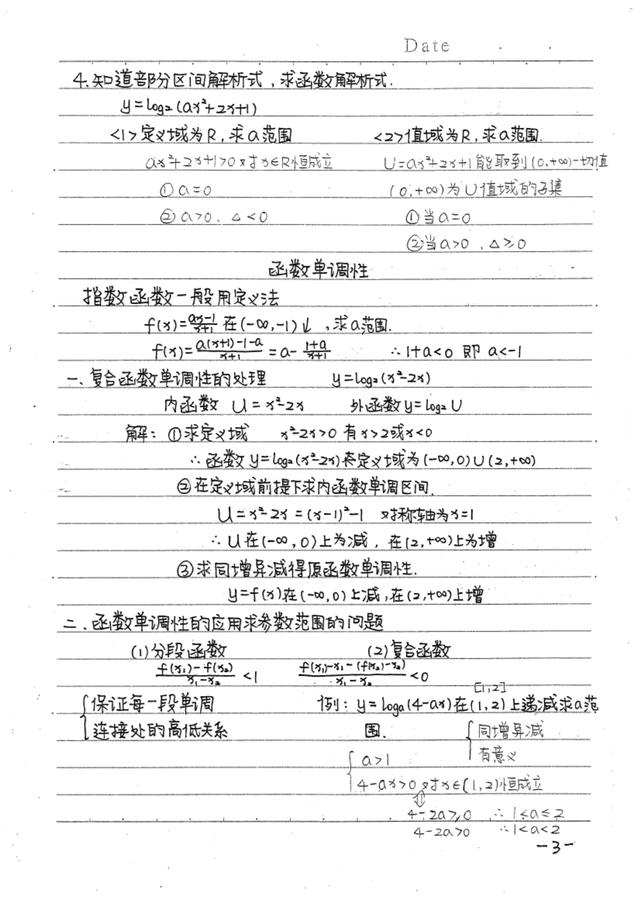 Date
4.知道部分区间解析式，求函数解析式.
y=log₂(ax²+2x+1)
<1>定义域为R，求a范围 <2>值域为R，求a范围.
ax²+2x+1>0对x∈R恒成立 U=ax²+2x+1能取到(0,+∞)一切值
①a=0 (0,+∞)为U值域的子集
②a>0、△<0 ①当a=0
②当a>0，△≥0
函数单调性
指数函数一般用定义法
f(x)=(ax-1)/(x+1) 在(-∞,-1)↓，求a范围.
f(x)=(a(x+1)-1-a)/(x+1)=a-(1+a)/(x+1) ∴1+a<0 即 a<-1
一.复合函数单调性的处理 y=log₂(x²-2x)
内函数 U=x²-2x 外函数y=log₂U
解：①求定义域 x²-2x>0 有x>2或x<0
∴函数y=log₂(x²-2x)定义域为(-∞,0)∪(2,+∞)
②在定义域前提下求内函数单调区间.
U=x²-2x=(x-1)²-1 对称轴为x=1
∴U在(-∞,0)上为减，在(2,+∞)上为增
③求同增异减得原函数单调性.
y=f(x)在(-∞,0)上减,在(2,+∞)上增
二.函数单调性的应用求参数范围的问题
(1)分段函数 (2)复合函数
(f(x₁)-f(x₂))/(x₁-x₂)<1 (f(x₁)-x₁-(f(x₂)-x₂))/(x₁-x₂)<0
[1,2]
{保证每一段单调 例：y=logₐ(4-ax)在(1,2)上递减求a范
连接处的高低关系 围. {同增异减
有意义
{a>1
4-ax>0对x∈(1,2)恒成立
⇕
4-2a≥0 ∴1<a≤2
4-2a>0 ∴1<a<2
-3-